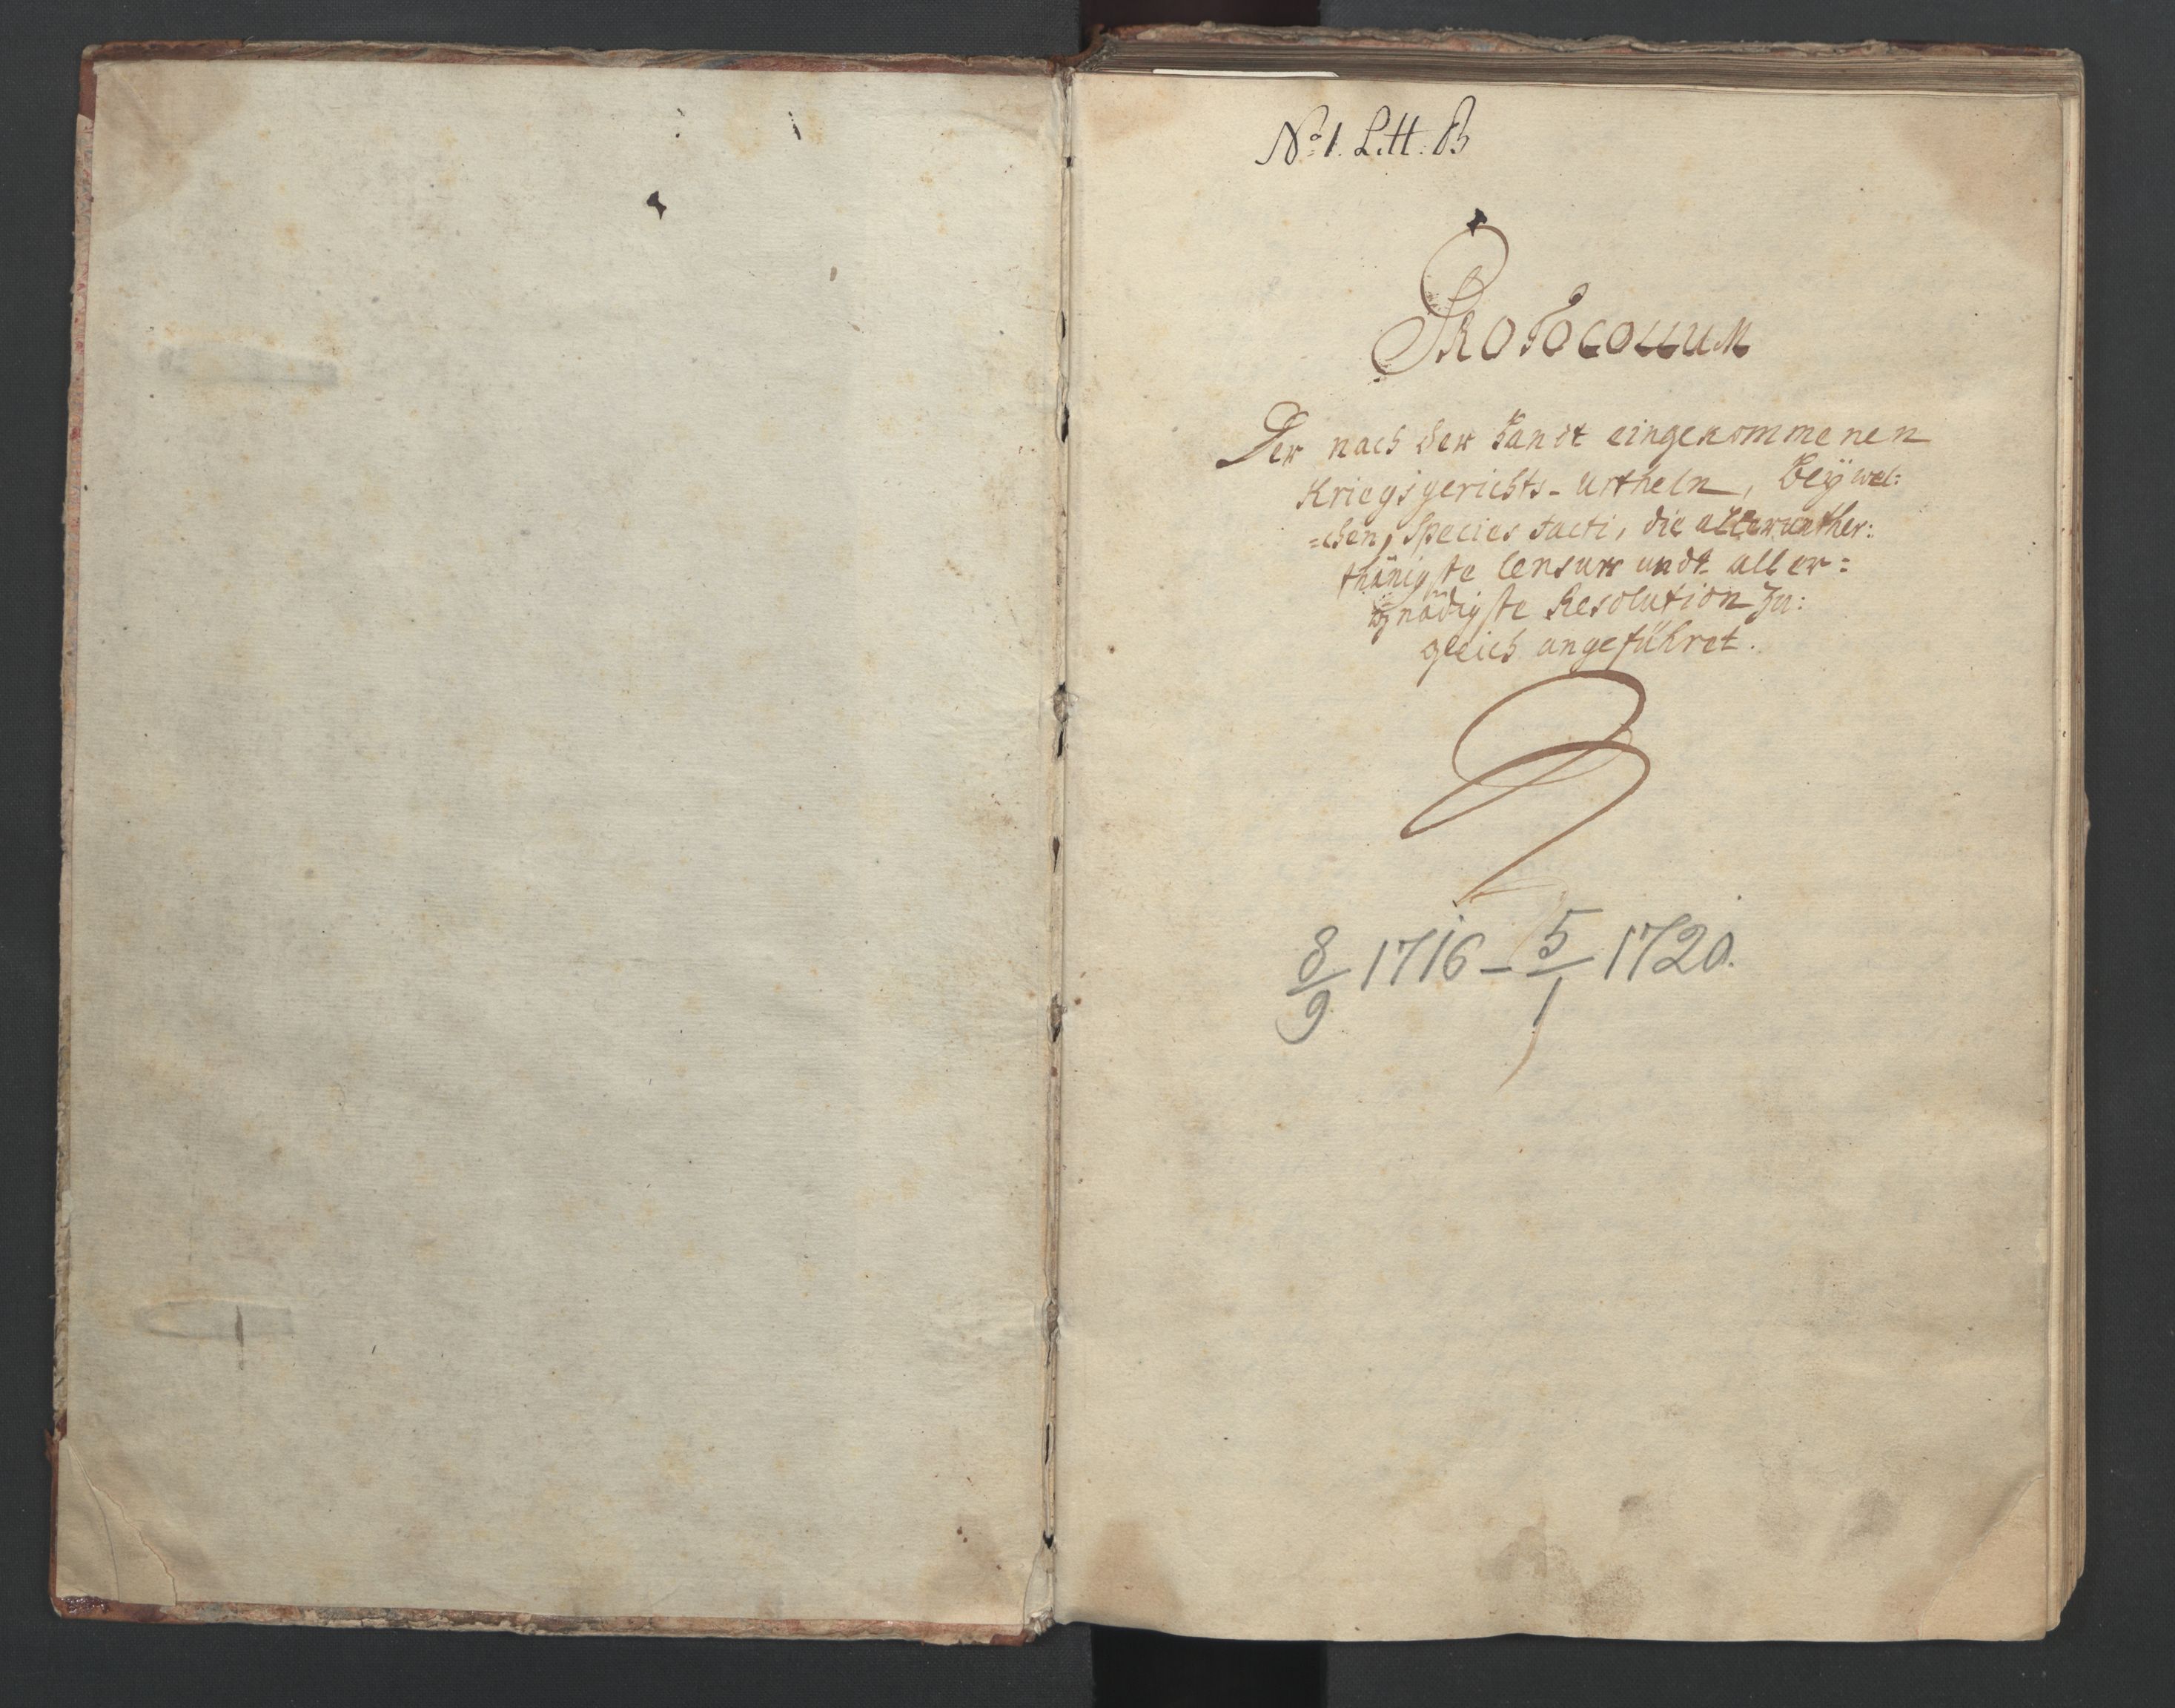 No 1. Litt. B
Protocollum
Der nach der Handt eingekommenen
Kriegsgerichts-Urtheln, beÿ wel:
=chen, Species facti, die allerunther:
thänigste Censur undt aller:
gnädigste Resolution zu:
gleich angeführet.
8/9 1716 – 5/1 1720.